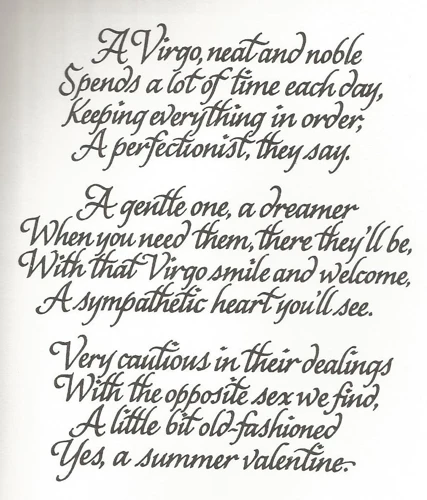 A Virgo, neat and noble
Spends a lot of time each day,
Keeping everything in order,
A perfectionist, they say.
A gentle one, a dreamer
When you need them, there they'll be,
With that Virgo smile and welcome,
A sympathetic heart you'll see.
Very cautious in their dealings
With the opposite sex we find,
A little bit old-fashioned
Yes, a summer valentine.